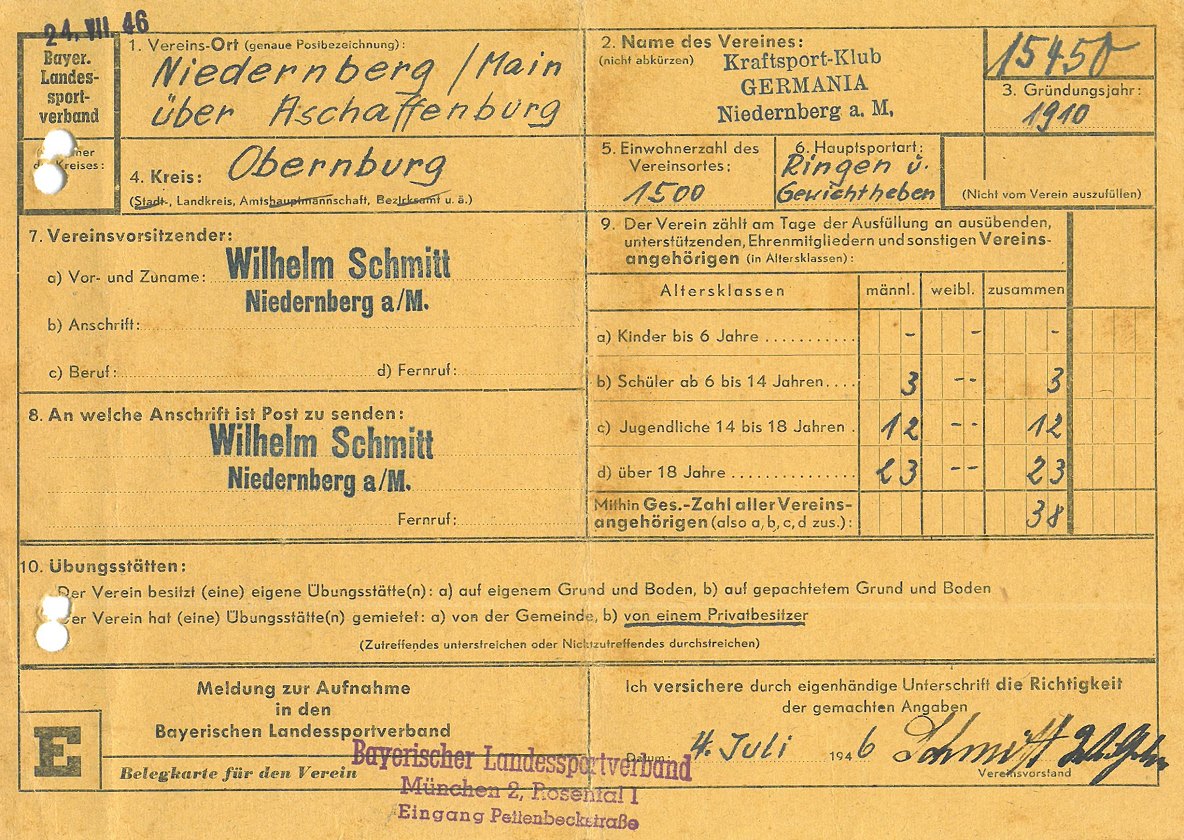 24. VII. 46
Bayer.
Landes-
sport-
verband
Kreises:
1. Vereins-Ort (genaue Postbezeichnung):
Niedernberg / Main
über Aschaffenburg
2. Name des Vereines:
(nicht abkürzen)
Kraftsport-Klub
GERMANIA
Niedernberg a. M,
15450
3. Gründungsjahr:
1910
4. Kreis: Obernburg
(Stadt-, Landkreis, Amtshauptmannschaft, Bezirksamt u. ä.)
5. Einwohnerzahl des
Vereinsortes:
1500
6. Hauptsportart:
Ringen u.
Gewichtheben
(Nicht vom Verein auszufüllen)
7. Vereinsvorsitzender:
a) Vor- und Zuname: Wilhelm Schmitt
Niedernberg a/M.
b) Anschrift:
c) Beruf: d) Fernruf:
8. An welche Anschrift ist Post zu senden:
Wilhelm Schmitt
Niedernberg a/M.
Fernruf:
9. Der Verein zählt am Tage der Ausfüllung an ausübenden,
unterstützenden, Ehrenmitgliedern und sonstigen Vereins-
angehörigen (in Altersklassen):
Altersklassen männl. weibl. zusammen
a) Kinder bis 6 Jahre ........... - - -
b) Schüler ab 6 bis 14 Jahren.... 3 -- 3
c) Jugendliche 14 bis 18 Jahren . 12 -- 12
d) über 18 Jahre ............... 23 -- 23
Mithin Ges.-Zahl aller Vereins-
angehörigen (also a, b, c, d zus.): 38
10. Übungsstätten:
Der Verein besitzt (eine) eigene Übungsstätte(n): a) auf eigenem Grund und Boden, b) auf gepachtetem Grund und Boden
Der Verein hat (eine) Übungsstätte(n) gemietet: a) von der Gemeinde, b) von einem Privatbesitzer
(Zutreffendes unterstreichen oder Nichtzutreffendes durchstreichen)
Meldung zur Aufnahme
in den
Bayerischen Landessportverband
E
Belegkarte für den Verein
Ich versichere durch eigenhändige Unterschrift die Richtigkeit
der gemachten Angaben
Datum: 4. Juli 1946 Schmitt Wilhelm
Vereinsvorstand
Bayerischer Landessportverband
München 2, Rosental 1
Eingang Pettenbeckstraße